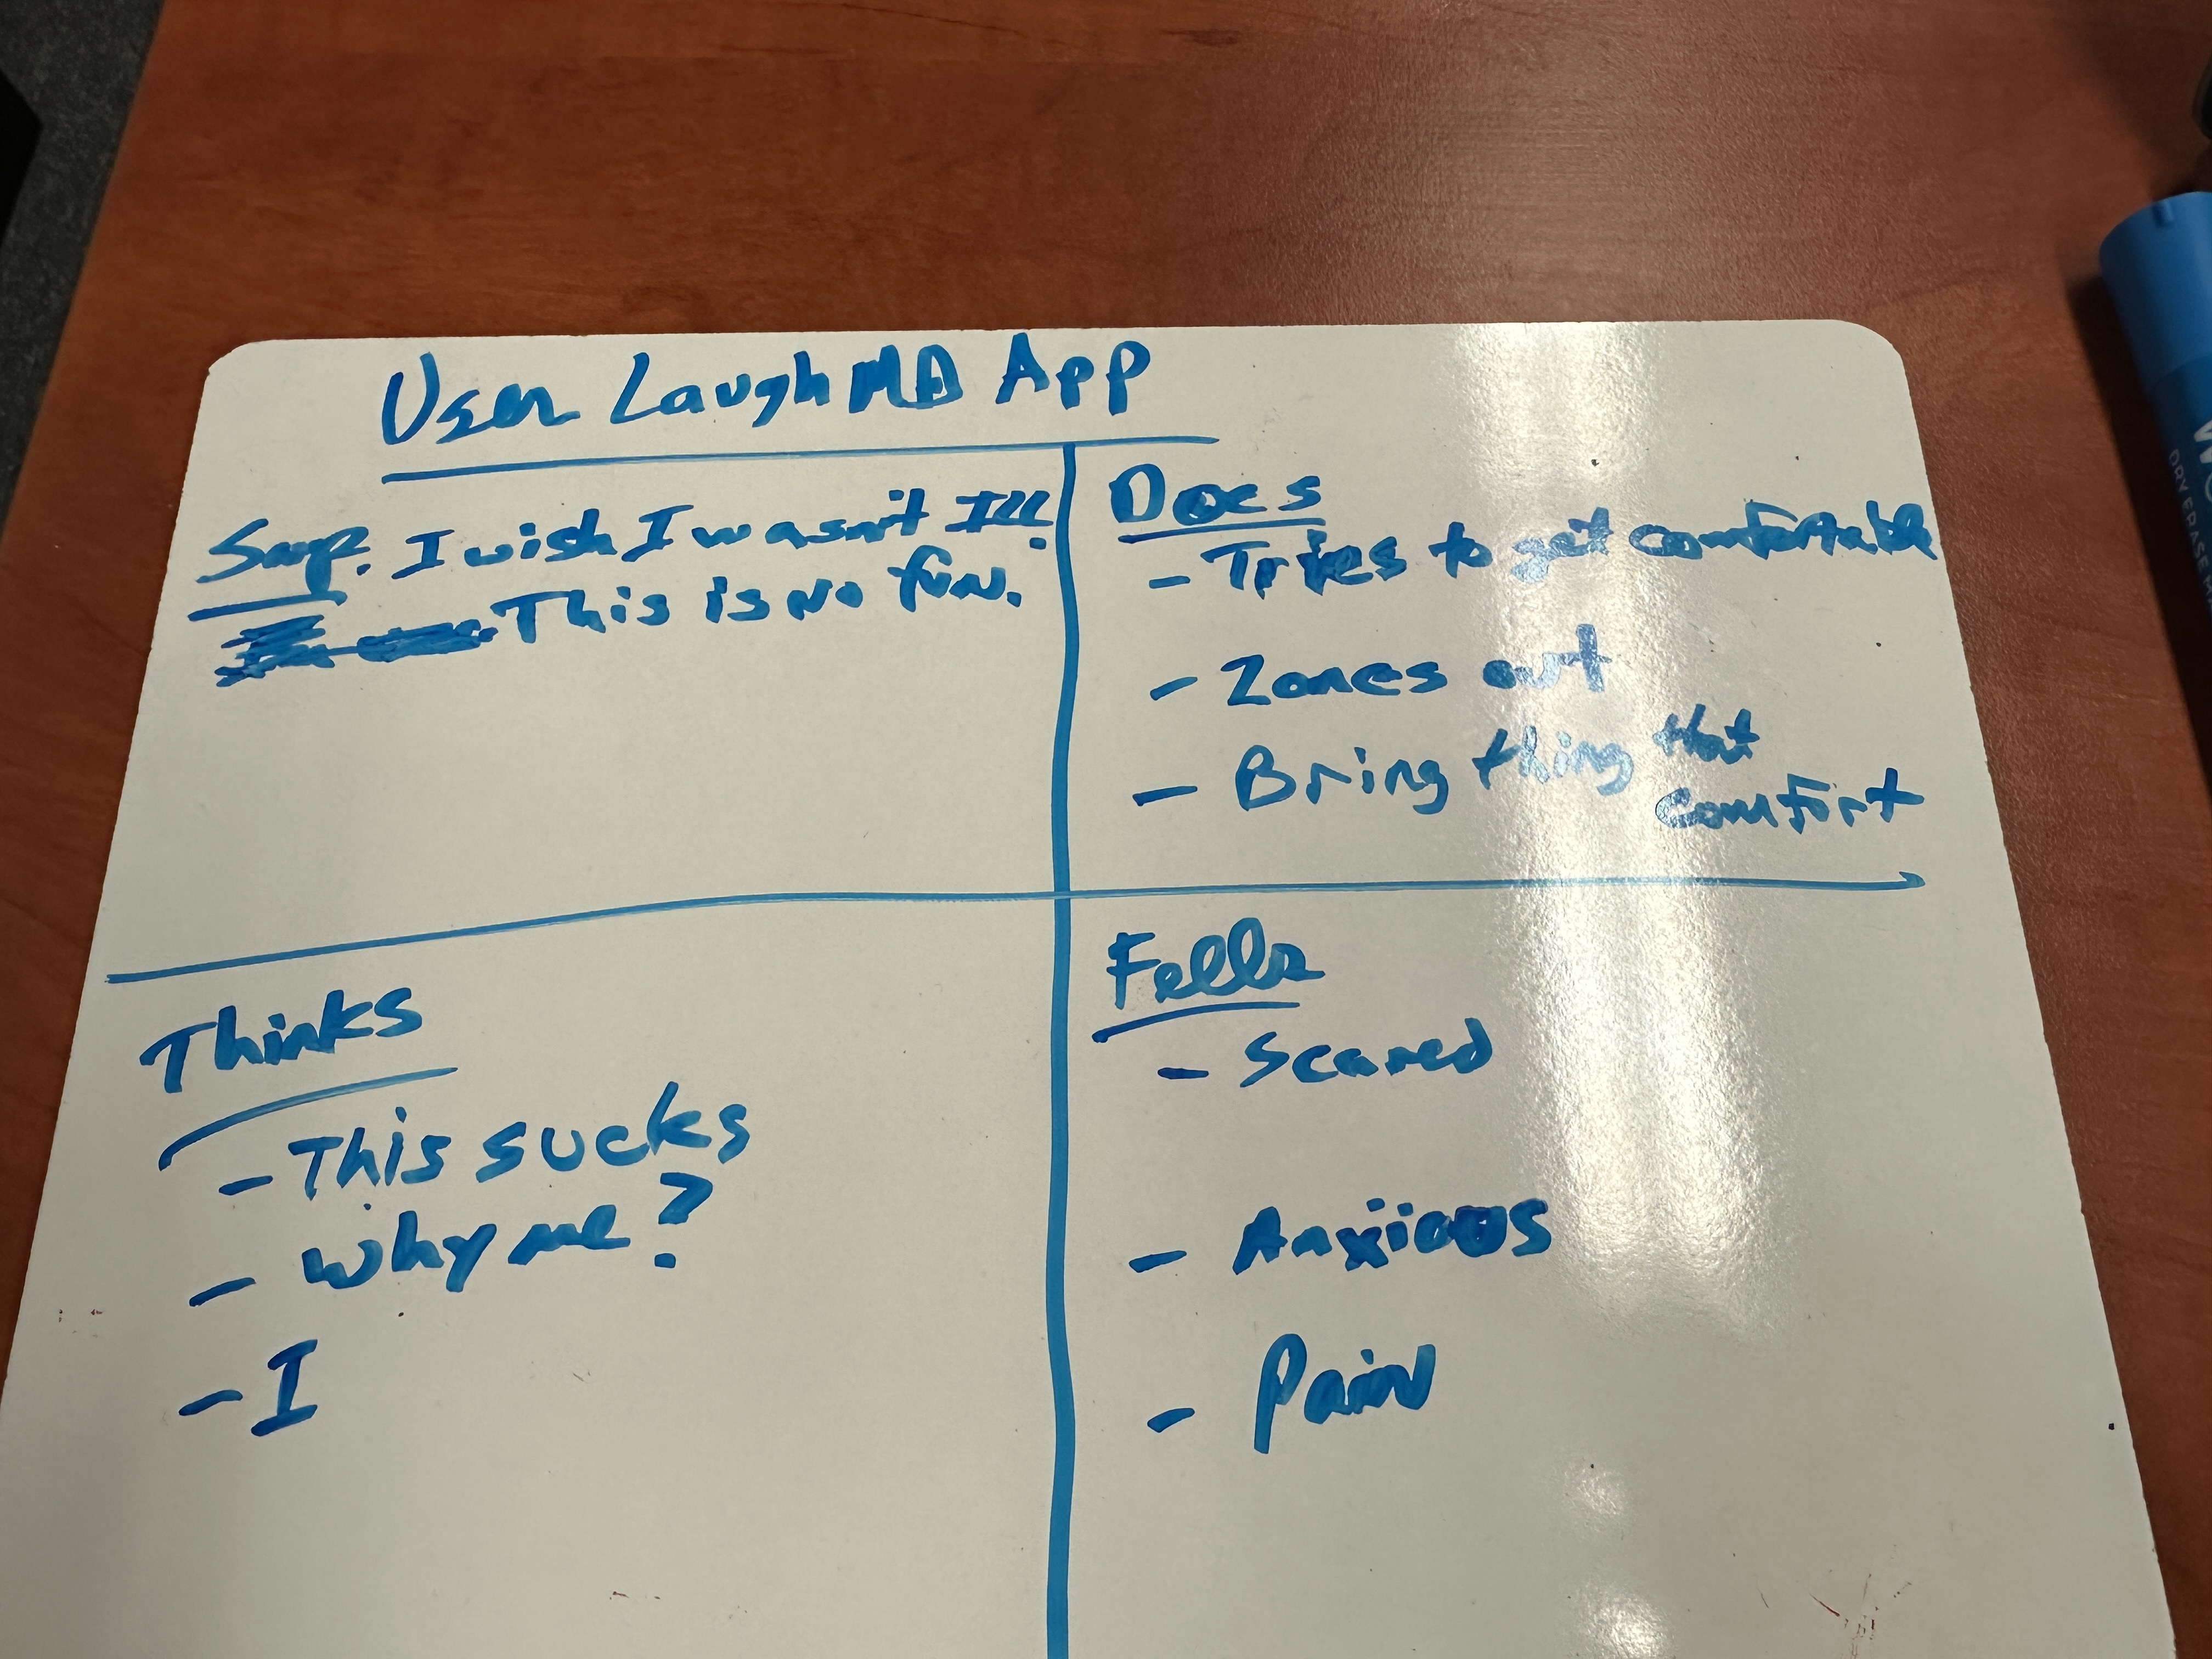 User LaughMD App
Says. I wish I wasn't Ill.
This is no fun.
Does
- Tries to get comfortable
- Zones out
- Bring thing that
comfort
Thinks
- This sucks
- Why me?
- I
Fells
- Scared
- Anxious
- Pain
DRY ERASE